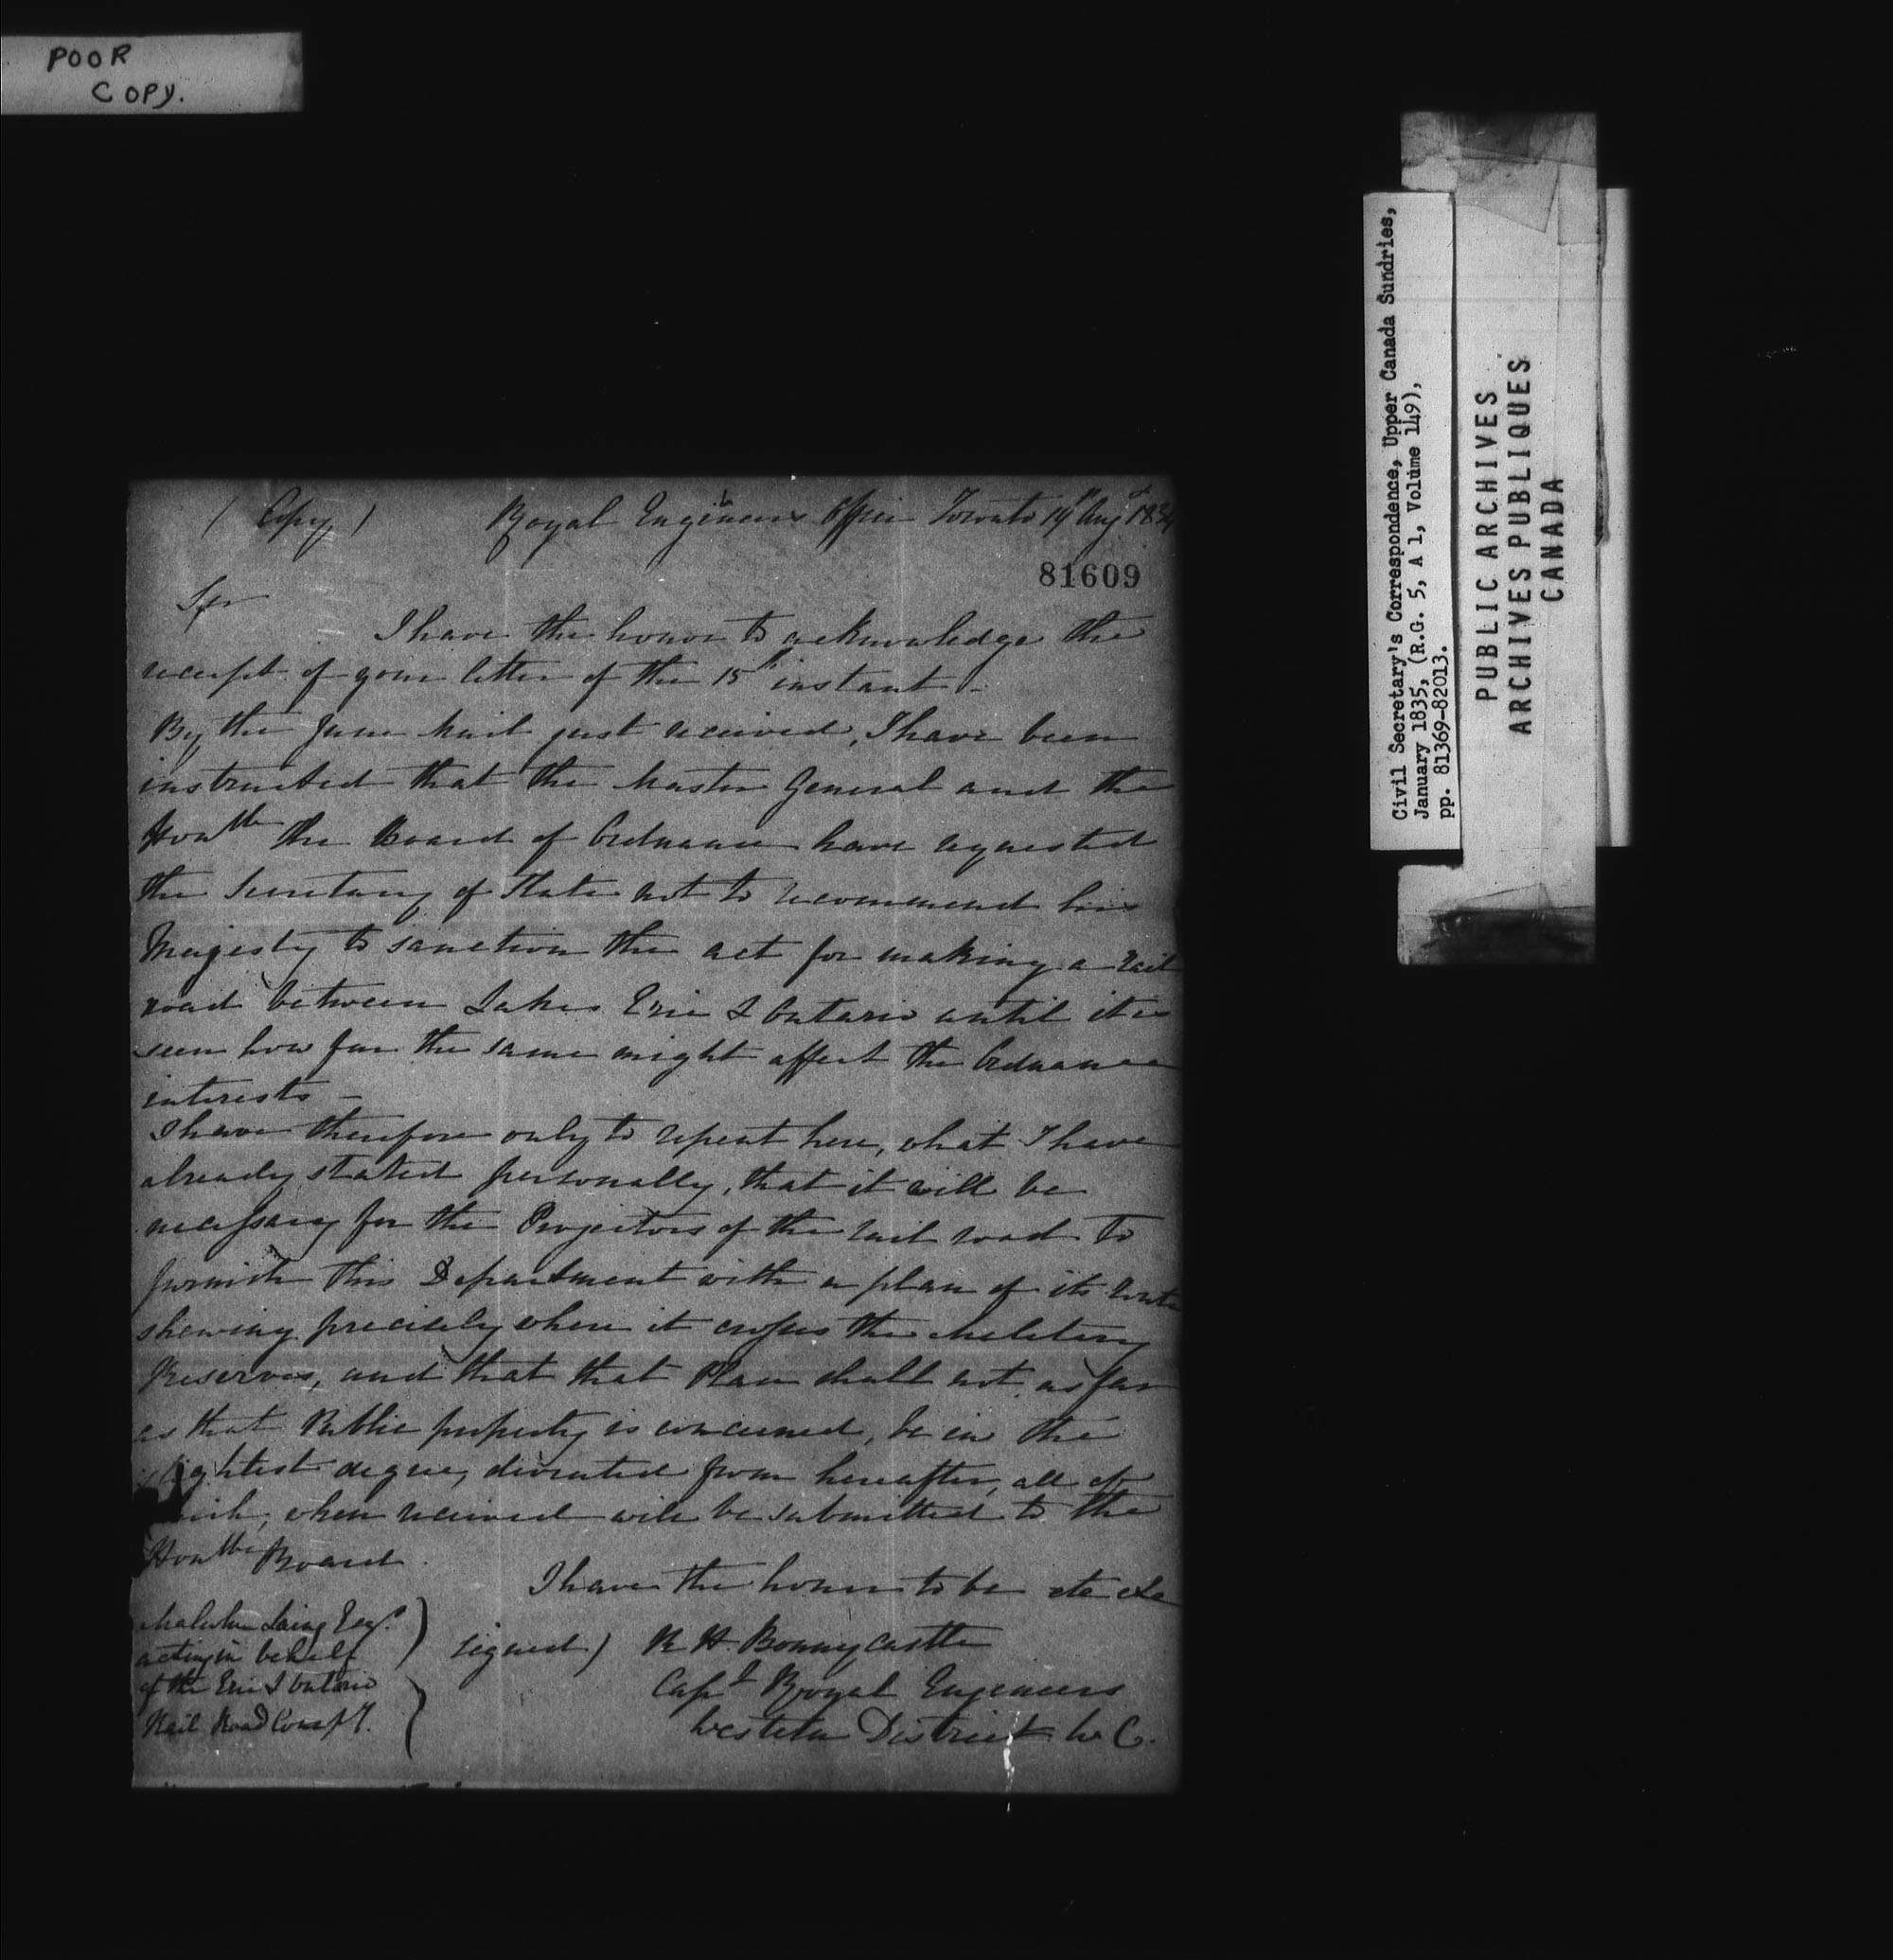 POOR
COPY.
(Copy) Royal Engineers Office Toronto 19th Augt 1834
81609
Sir
I have the honor to acknowledge the
receipt of your letter of the 15th instant.-
By the June Mail just received, I have been
instructed that the Master General and the
Honble the Board of Ordnance have requested
the Secretary of State not to recommend his
Majesty to sanction the act for making a Rail
road between Lakes Erie & Ontario until it is
seen how far the same might affect the Ordnance
interests -
I have therefore only to repeat here, what I have
already stated personally, that it will be
necessary for the Projectors of the rail road to
furnish this Department with a plan of its route
shewing precisely where it crosses the Military
Reserves, and that that Plan shall not, as far
as that Public property is concerned, be in the
slightest degree, diviated from hereafter, all of
which, when received will be submitted to the
Honble Board.
I have the honor to be etc etc
Malcolm Laing Esqr.
acting in behalf
of the Erie & Ontario
Rail Road Compy.
signed) R H. Bonnycastle
Capt Royal Engineers
Western District U C.
Civil Secretary's Correspondence, Upper Canada Sundries,
January 1835, (R.G. 5, A 1, Volume 149),
pp. 81369-82013.
PUBLIC ARCHIVES
ARCHIVES PUBLIQUES
CANADA